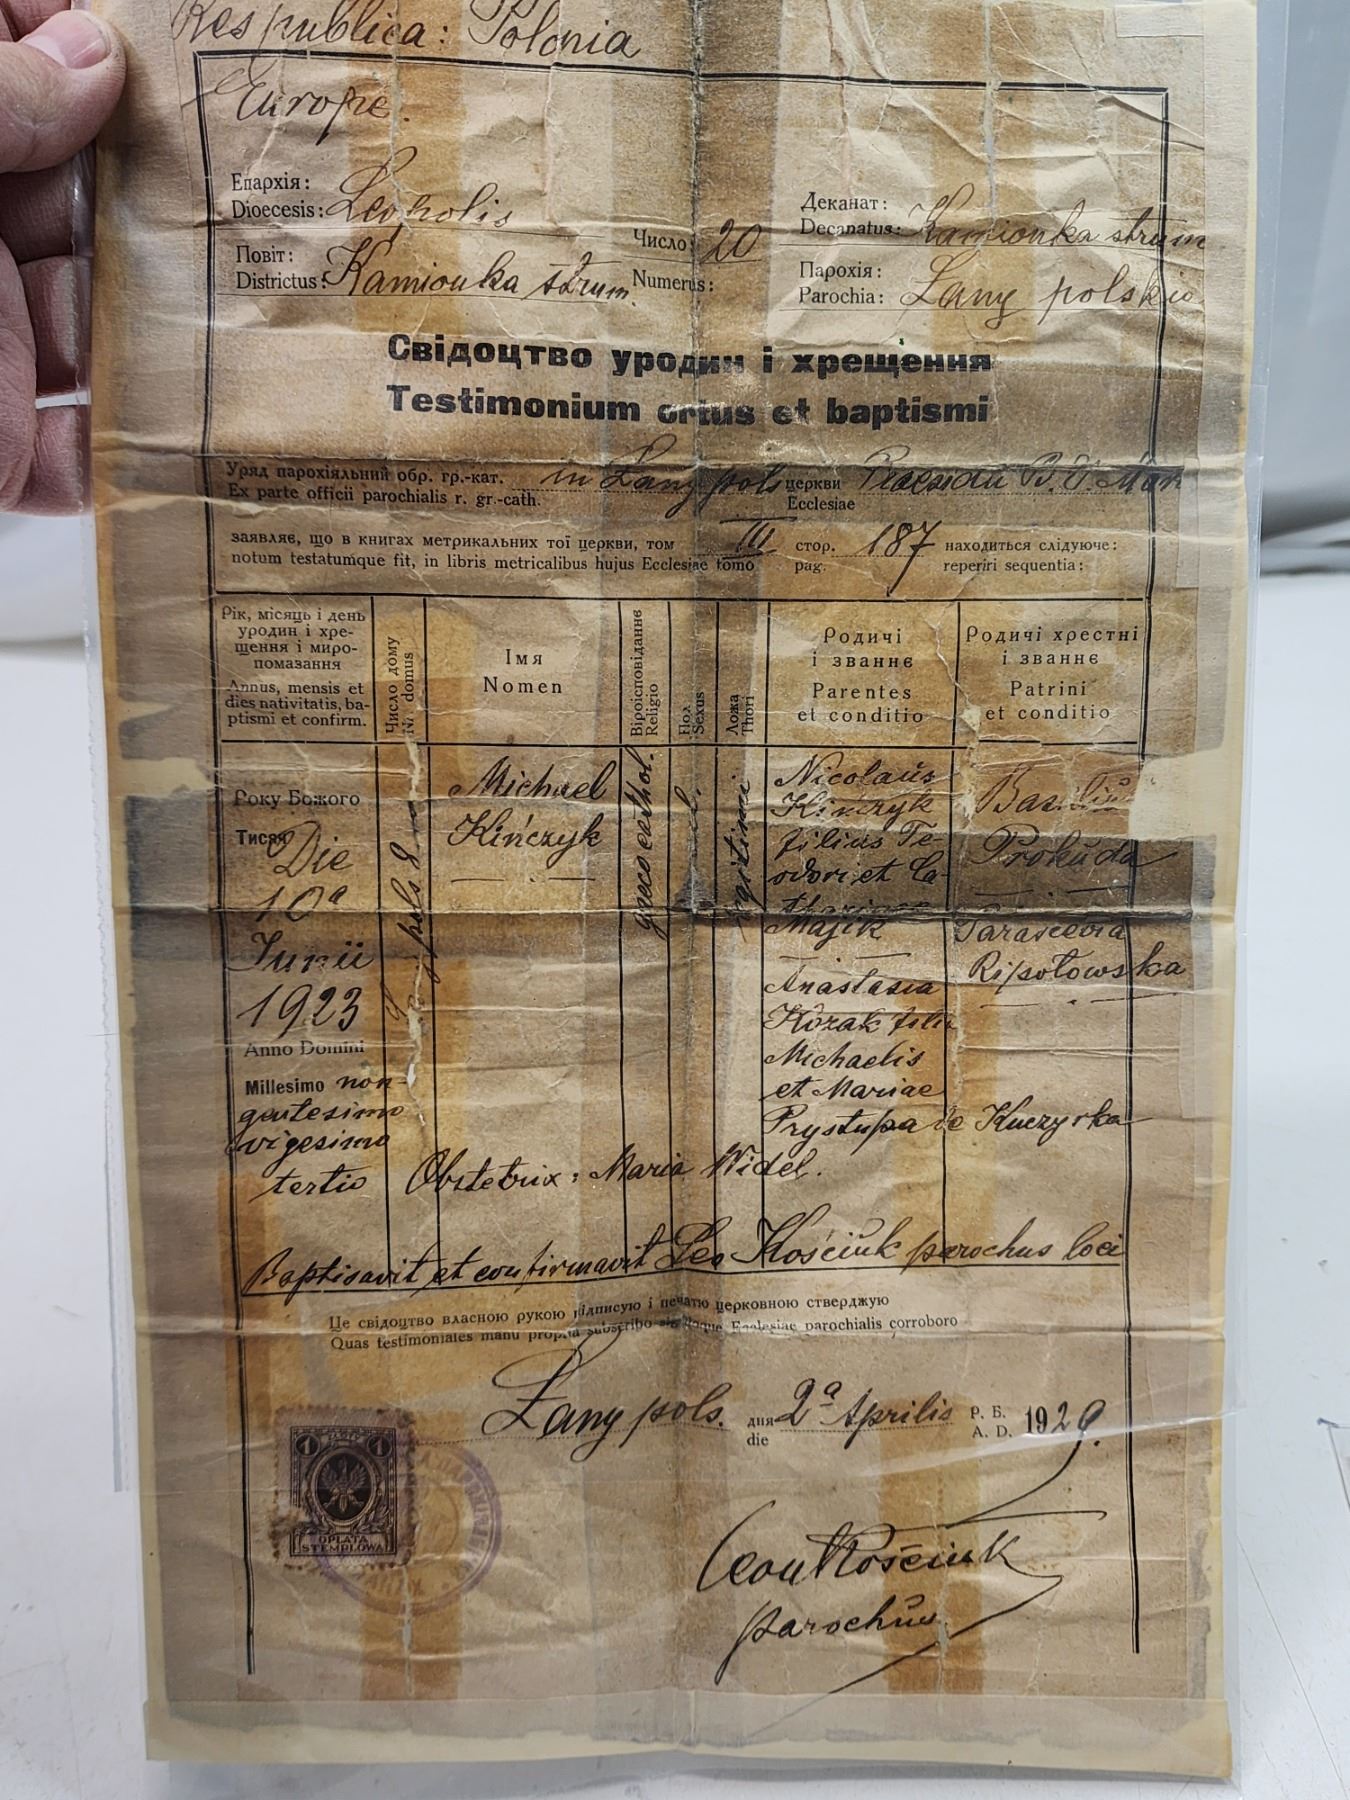 Respublica: Polonia
Europe.
Епархія:
Dioecesis: Leopolis
Деканат:
Decanatus: Kamionka strum
Число:
Numerus: 20
Повіт:
Districtus: Kamionka strum.
Парохія:
Parochia: Łany polskie
Свідоцтво уродин і хрещення
Testimonium ortus et baptismi
Уряд парохіяльний обр. гр.-кат. in Łany pols церкви
Ex parte officii parochialis r. gr.-cath. Ecclesiae B. V. Mar
заявляє, що в книгах метрикальних тої церкви, том III стор. 187 находиться слідуюче:
notum testatumque fit, in libris metricalibus hujus Ecclesiae tomo pag. reperiri sequentia:
Рік, місяць і день
уродин і хре-
щення і миро-
помазання
Annus, mensis et
dies nativitatis, ba-
ptismi et confirm.
Число дому
Nr. domus
Імя
Nomen
Віроісповіданнє
Religio
Пол
Sexus
Ложа
Thori
Родичі
і званнє
Parentes
et conditio
Родичі хрестні
і званнє
Patrini
et conditio
Року Божого
Тисяч
Die
10ª
Junii
1923
Anno Domini
Millesimo non-
gentesimo
vigesimo
tertio
pols 8
Michael
Kińczyk
graeco cathol.
legitimi
Nicolaus
Kińczyk
filius Te-
odori et Ca-
tharinae
Majik
Anastasia
Kozak filia
Michaelis
et Mariae
Prystupa de Kuczyrka
Basilius
Prokuda
Parascevia
Ripołowska
Obstetrix: Maria Widel.
Baptisavit et confirmavit Leo Kościuk parochus loci
Це свідоцтво власною рукою підписую і печатю церковною стверджую
Quas testimoniales manu propria subscribo sigilloque Ecclesiae parochialis corroboro
Łany pols. дня 2ª Aprilis Р. Б. 1929.
die A. D.
1 1
OPŁATA
STEMPLOWA
Leon Kościuk
parochus